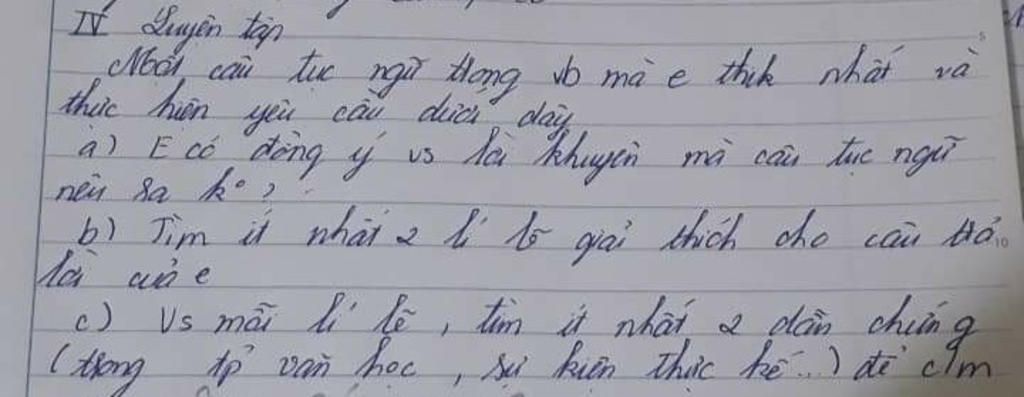 IV Luyện tập
Một câu tục ngữ trong vb mà e thik nhất và
thực hiện yêu cầu dưới đây
a) E có đồng ý vs lời khuyên mà câu tục ngữ
nêu ra k° ?
b) Tìm ít nhất 2 lí lẽ giải thích cho câu trả
lời của e
c) Vs mỗi lí lẽ, tìm ít nhất 2 dẫn chứng
(trong tp văn học, sự kiện thực tế...) để c/m